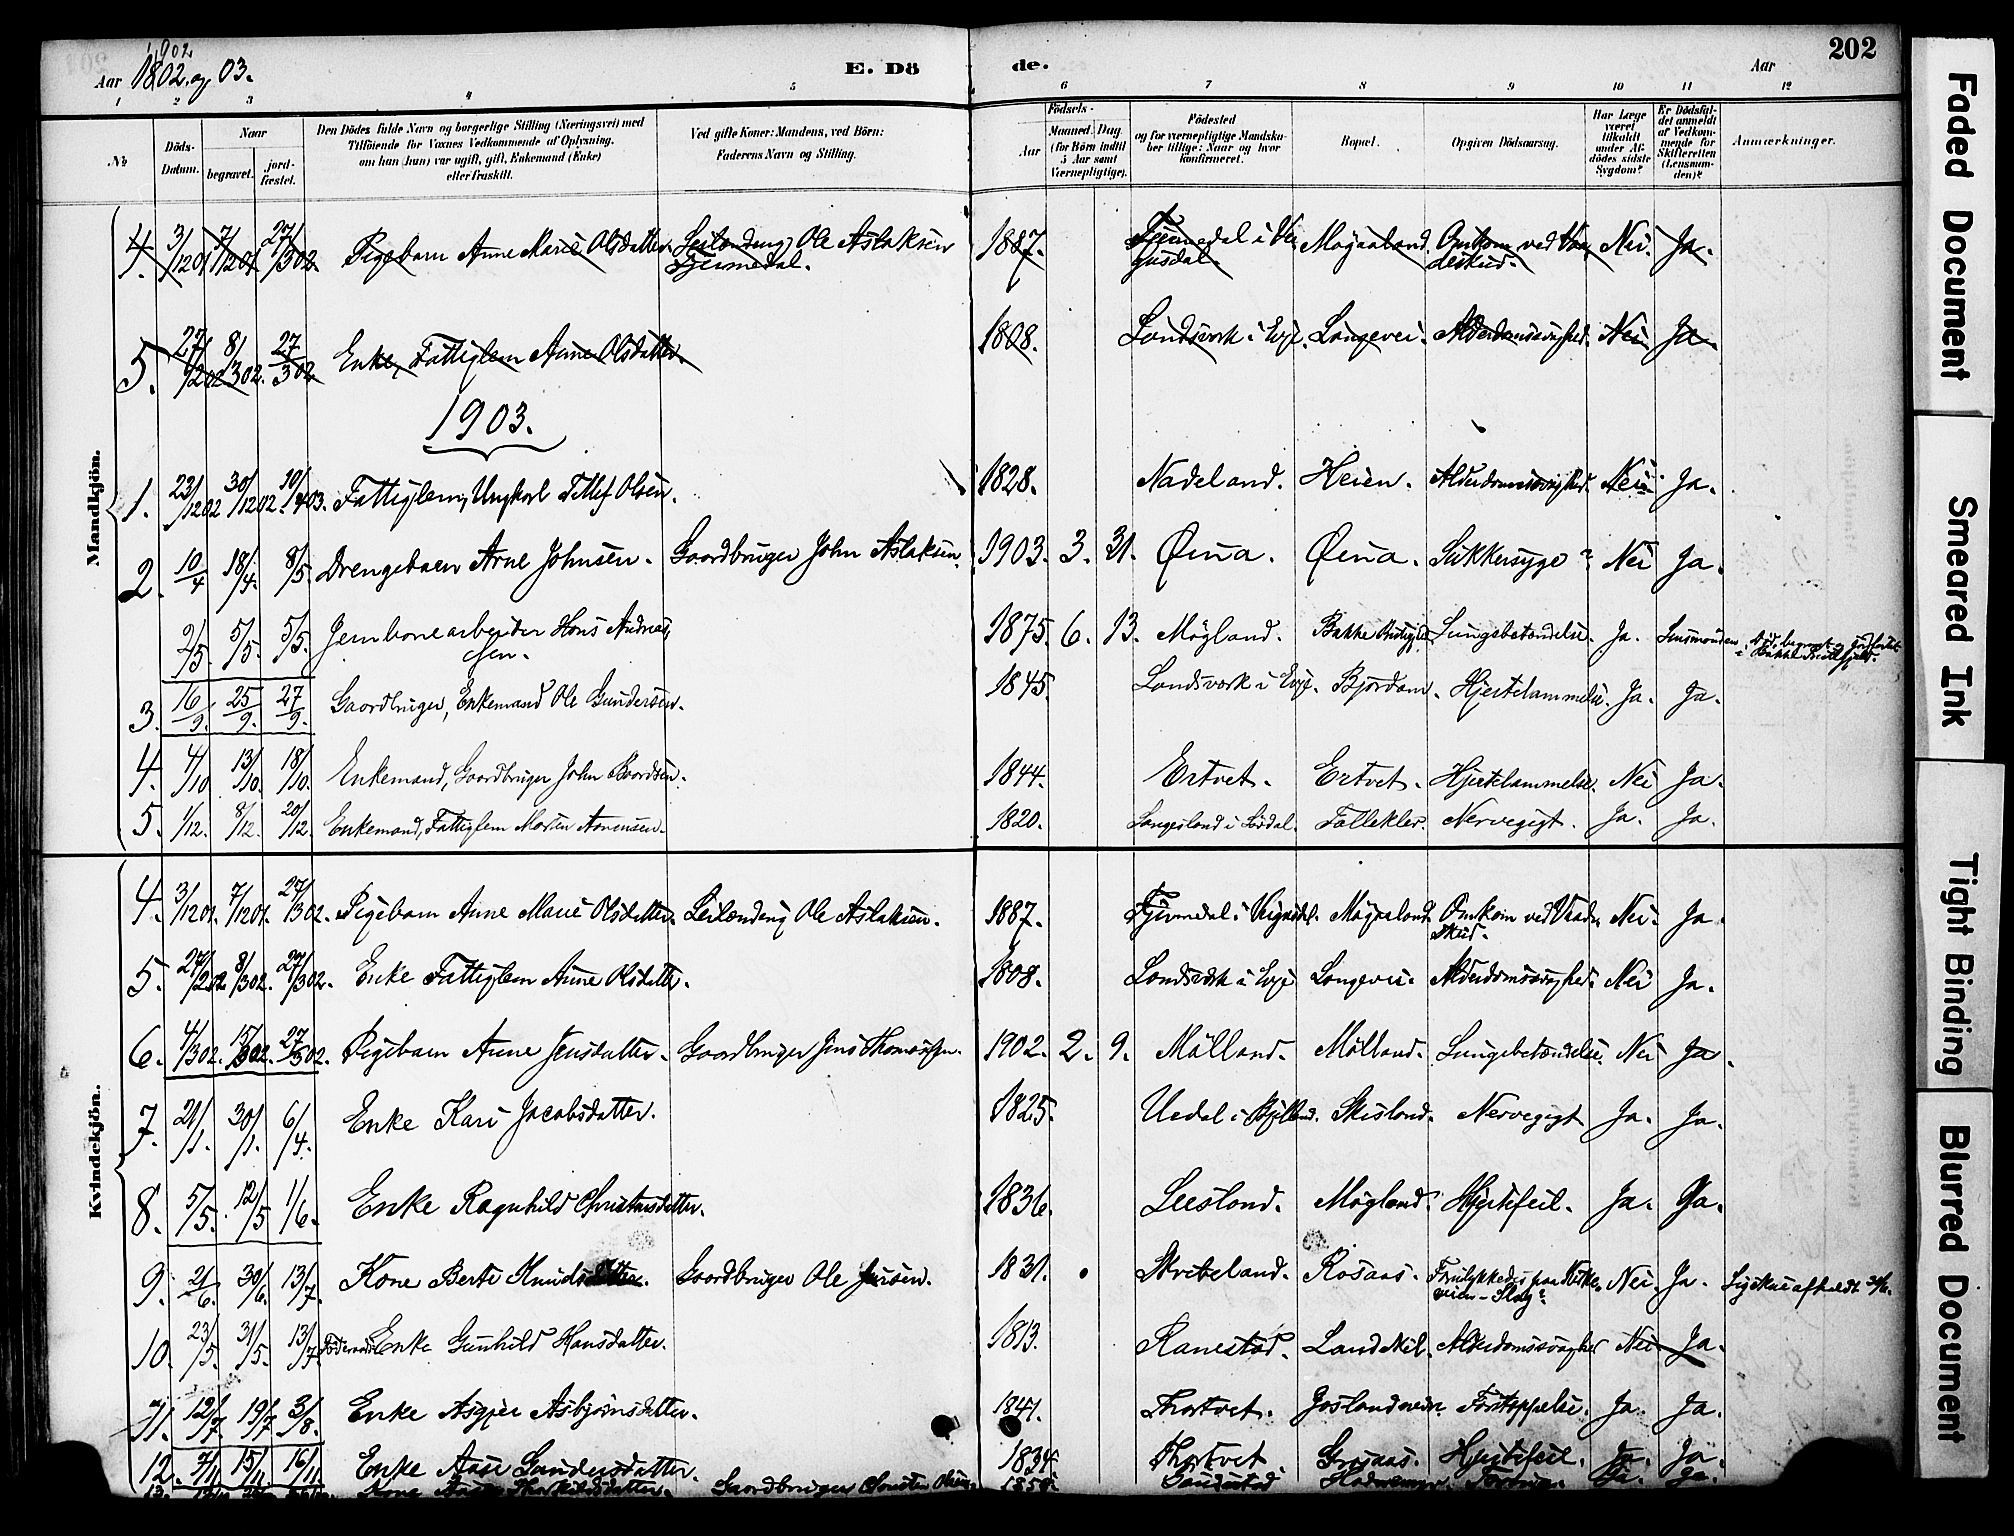 Aar 1802 og 03.
1902
E. Dö
de.
Aar
202
1 2 3 4 5 6 7 8 9 10 11 12
No
Döds-
Datum.
Naar
begravet.
jord-
fæstet.
Den Dödes fulde Navn og borgerlige Stilling (Næringsvei) med
Tilföiende for Voxnes Vedkommende af Oplysning,
om han (hun) var ugift, gift, Enkemand (Enke)
eller fraskilt.
Ved gifte Koner: Mandens, ved Börn:
Faderens Navn og Stilling.
Födsels-
Aar
Maaned. Dag.
(for Börn indtil
5 Aar samt
Værnepligtige).
Födested
og for værnepligtige Mandska-
ber tillige: Naar og hvor
konfirmeret.
Bopæl.
Opgiven Dödsaarsag.
Har Læge
været
tilkaldt
under Af-
dödes sidste
Sygdom?
Er Dödsfal-
det anmeldt
af Vedkom-
mende for
Skifteretten
(Lensman-
den)?
Anmærkninger.
Mandkjön.
4. 3/12 01 7/12 01 27/3 02. Pigebarn Anne Marie Olsdatter. Leilænding Ole Aslaksen 1887. Mögaaland Nei. Ja.
5. 27/2 02 8/3 02. 27/3 02 Enke, Fattiglem Anne Olsdatter. 1808. Landsverk i Evje. Langevei. Alderdomssvaghed. Nei. Ja.
1903.
1. 23/12 02 30/12 02. 10/4 03. Fattiglem, Ungkarl Tellef Olsen. 1828. Nadeland. Heien. Alderdomssvaghed. Nei. Ja.
2. 10/4 18/4. 8/5 Drengebarn Arne Johnsen. Gaardbruger John Aslaksen. 1903. 3. 31. Øina. Øina. Sukkersyge? Nei Ja.
2/5. 5/5. 5/5. Jernbanearbeider Hans Andreas 1875. 6. 13. Mögland. Bakke Lungebetændelse. Ja.
sen.
3. 16/9. 25/9. 27/9. Gaardbruger, Enkemand Ole Gundersen. 1845. Landsverk i Evje. Bjordam. Hjertelammelse. Ja. Ja.
4. 4/10 13/10. 18/10. Enkemand, Gaardbruger John Baardsen. 1844. Ertvet. Ertvet. Hjertelammelse. Nei Ja.
5. 1/12. 8/12. 20/12. Enkemand, Fattiglem Morten Aanensen. 1820. Langeland i Nervegigt. Ja. Ja.
Kvindekjön.
4. 3/12 01. 7/12 01. 27/3 02. Pigebarn Anne Marie Olsdatter. Leilænding Ole Aslaksen. 1887. Mögaaland. Omkom ved Vaade- Nei. Ja.
skud.
5. 27/2 02. 8/3 02. 27/3 02. Enke Fattiglem Anne Olsdatter. 1808. Landsverk i Evje Langevei. Alderdomssvaghed. Nei Ja.
6. 4/3 02. 15/3 02. 27/5 02. Pigebarn Anne Jensdatter. Gaardbruger Jens Thomassen. 1902. 2. 9. Mölland. Mölland. Lungebetændelse. Nei Ja.
7. 21/1. 30/1. 6/4. Enke Kari Jacobsdatter. 1825. Uedal i Skisland. Nervegigt Ja. Ja.
8. 5/5. 12/5 1/6. Enke Ragnhild Christensdatter. 1836. Leesland. Mögland. Hjertefeil. Ja. Ja.
9. 21/6. 30/6. 13/7. Kone Berte Knudsdatter. Gaardbruger Ole Jensen. 1831. Skribeland. Rosaas. Forulykkedes paa Kirke- Nei. Ja. Ligskue afholdt
veien - Slag?
10. 23/5. 31/5. 13/7. Enke Gunhild Hansdatter. 1813. Ranestad. Landskil. Alderdomssvaghed Nei Ja.
11. 12/7. 19/7 3/8. Enke Asgjer Asbjörnsdatter. 1841. Thortvet. Forstoppelse. Ja. Ja.
12. 7/11. 15/11. 16/11. Enke Aase Gundersdatter. 1834. Thortvet. Grosaas. Hjertefeil. Ja. Ja.
13. Gaardbruger Ja. Ja.
Faded Document
Smeared Ink
Tight Binding
Blurred Document